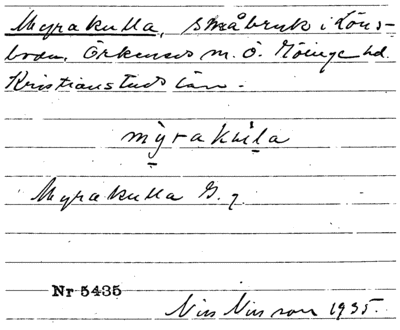 Myrakulla, småbruk i Löns-
boda, Örkeneds m. Ö. Göinge hd.
Kristianstads län.
mỳrakùla
Myrakulla G. 7
Nr 5435
Nils Nilsson 1935.